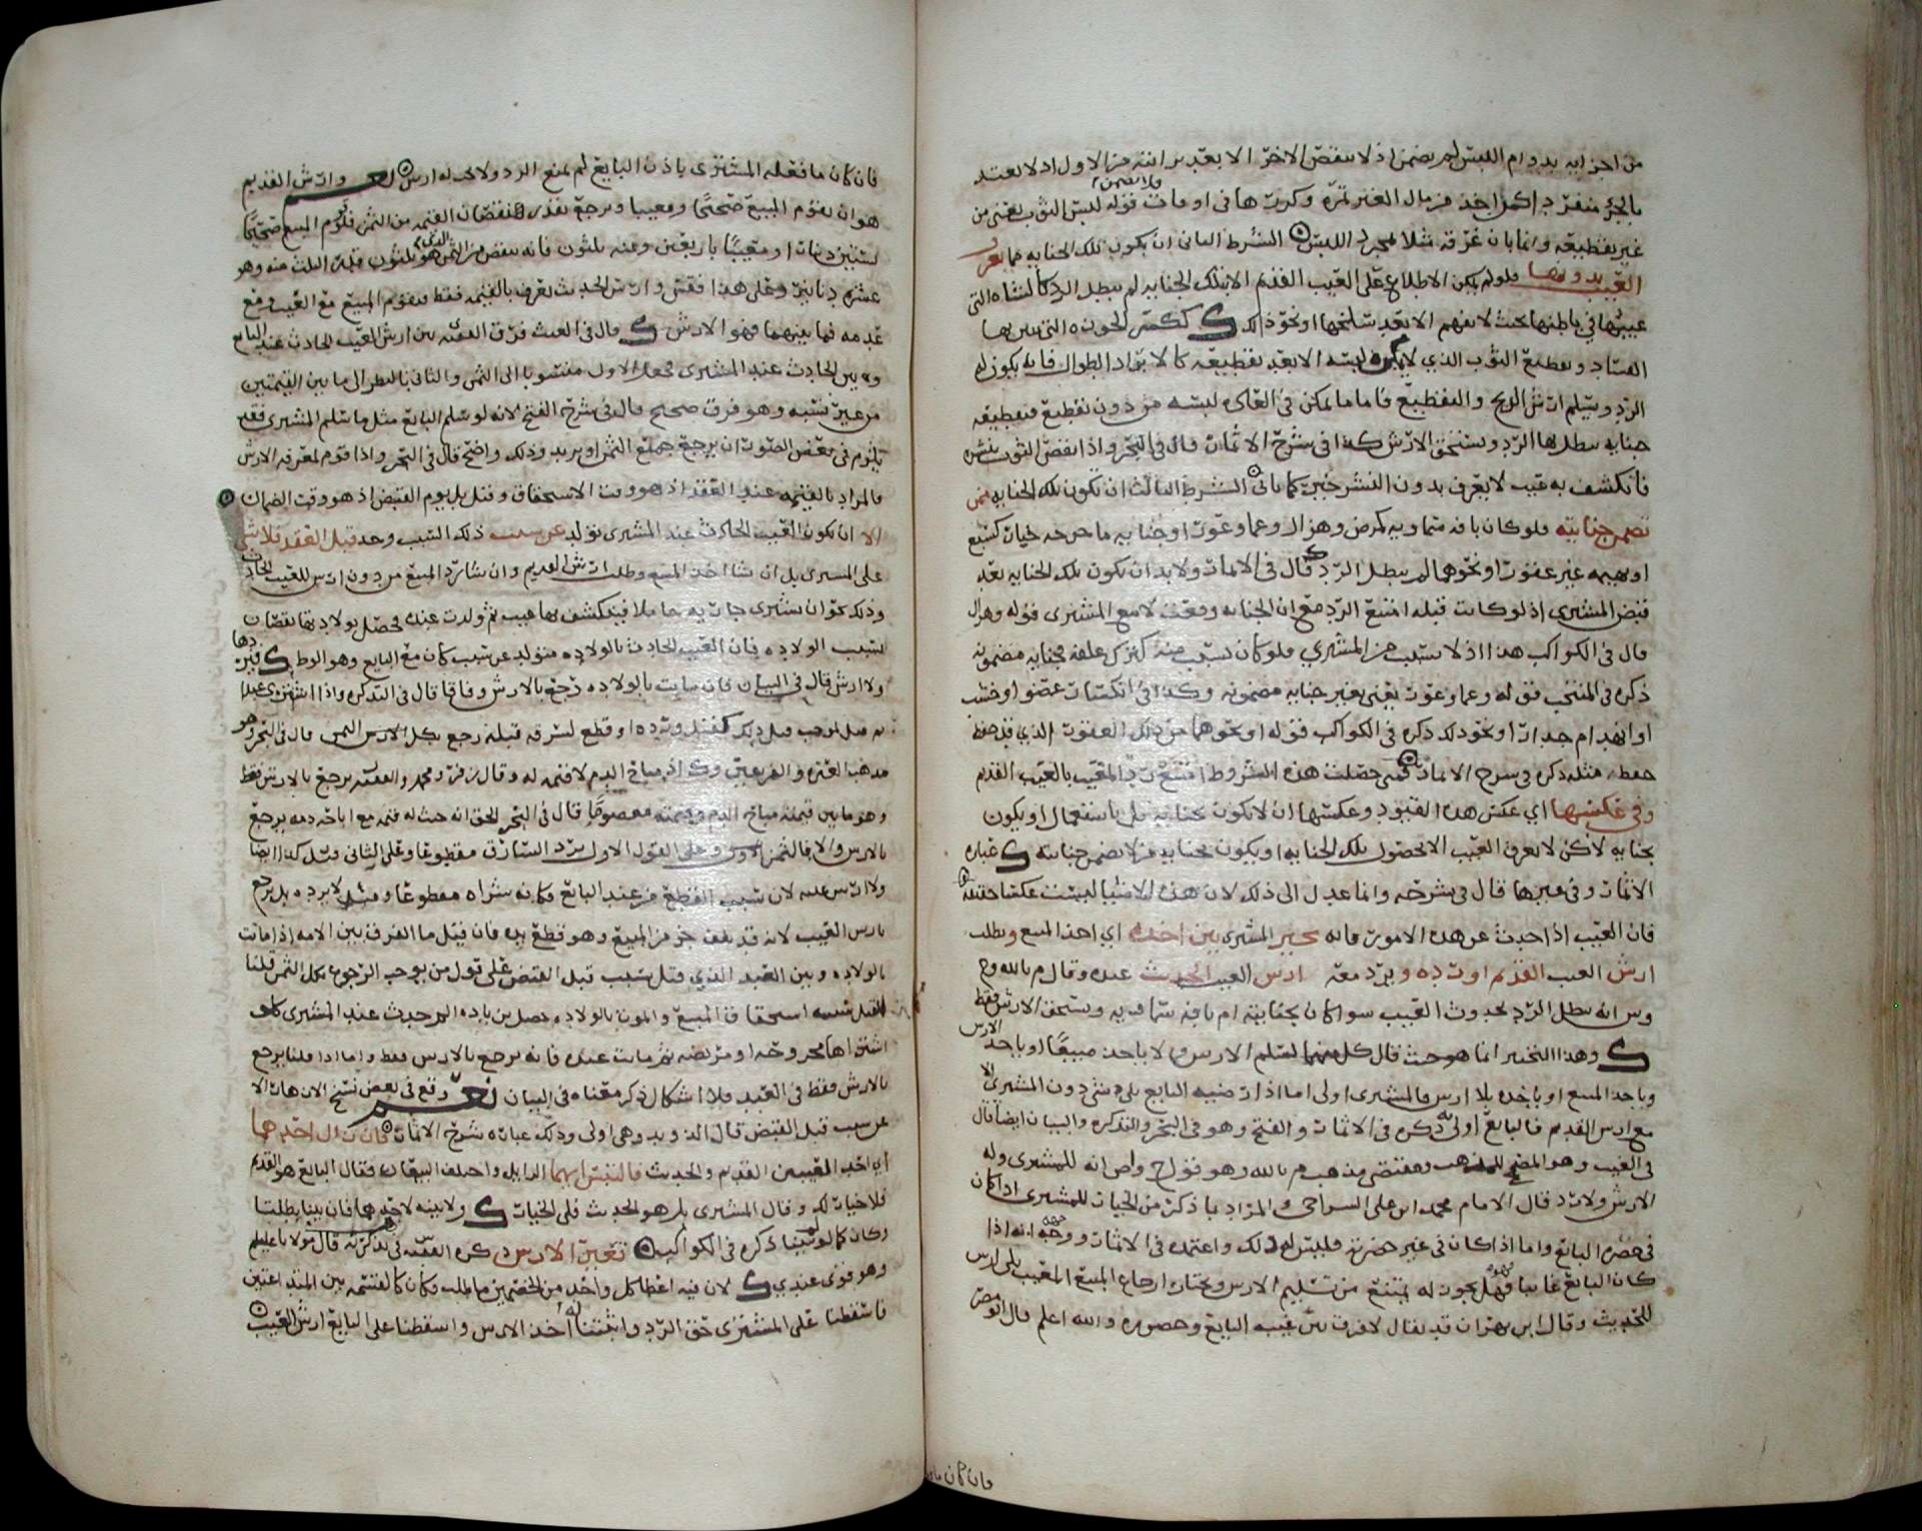 من اجزايه بدوام اللبس لم يضمن اذ لا ينقص الاخر الا بعد برايته من الاول اذ لا يعتد
بالجز منفرد
غير تقطيعه وانما بان غرقه مثلا بمجرد اللبس الشرط الثاني ان يكون تلك الجنايه مما يعرف
العيب بدونها فلو لم يمكن الاطلاع على العيب القديم الا بتلك الجنايه لم يبطل الرد كالشاه التي
عيبها في باطنها بحيث لا يفهم الا بعد سلخها او نحو ذلك ككسر الجوزه التي تبين بها
الفساد وتقطيع الثوب الذي لا يمكن لبسه الا بعد تقطيعه كما لا يراد الطوال فانه يكون له
الرد ويسلم ارش الربح والتقطيع فاما ما يمكن في العاده لبسه من دون تقطيع فتقطيعه
جنايه يبطل بها الرد ويستحق الارش كذا في شرح الاثمار قال في البحر واذا انقص الثوب بنشره
فانكشف به عيب لا يعرف بدون النشر خير كما ياتي الشرط الثالث ان تكون تلك الجنايه ممن
تضمن جنايته فلو كان بافه سماويه كمرض وهزال وعما وعور او جنايه ما جرحه خيار كسبع
او بهيمه غير عقور او نحوهما لم يبطل الرد قال في الاثمار ولا بد ان تكون تلك الجنايه بعد
قبض المشتري اذ لو كانت قبله امتنع الرد مع ان الجنايه وقعت لا مع المشتري قوله وهزال
قال في الكواكب هذا اذ لا سبب من المشتري فلو كان بسبب منه كترك علفه فجنايه مضمونه
ذكره في المنتخب قوله وعما وعور يعني بغير جنايه مضمونه وكذا في انكسار عضو او خشب
او انهدام جدار او نحو ذلك ذكره في الكواكب قوله او نحوهما من ذلك العقور الذي قد حفظ
حفظ مثله ذكره في شرح الاثمار فمتى حصلت هذه الشروط امتنع رد المعيب بالعيب القديم
وفي عكسها اي عكس هذه القيود وعكسها ان لا تكون بجنايه بل باستعمال او يكون
بجنايه لاكن لا يعرف العيب الا بحصول تلك الجنايه او يكون بجنايه من لا تضمن جنايته عباره
الاثمار وفي غيرها قال في شرحه وانما عدل الى ذلك لان هذه الاشيا ليست عكسا حقيقه
فان العيب اذا حدث عن هذه الامور فانه يخير المشتري بين اخذه اي اخذ المبيع وطلب
ارش العيب القديم او رده ويرد معه ارش العيب الحديث عنده وقال م بالله وح
وس انه يبطل الرد بحدوث العيب سوا كان بجنايته ام بافه سماويه ويستحق الارش فقط
وهذا التخيير انما هو حيث قال كل منهما نسلم الارش
وياخذ المبيع او ياخذه بلا ارش فالمشتري اولى اما اذا رضيه البايع بلا شي دون المشتري الا
مع ارش القديم فالبايع اولى به ذكره في الاثمار والفتح وهو في البحر والتذكره والبيان ايضا قال
في الغيث وهو المصحح للمذهب ومقتضى مذهب م بالله وهو قول ح وص انه للمشتري وله
الارش ولا رد قال الامام محمد بن علي السراجي والمراد بما ذكر من الخيار للمشتري اذا كان
في حضره البايع واما اذا كان في غير حضرته فليس له ذلك واعتمده في الاثمار ووجهه انه اذا
كان البايع غايبا فهل يجوز له يمتنع من تسليم الارش ويختار ارجاع المبيع المعيب بلا ارش
للحديث وقال ابن بهران قد يقال لا فرق بين غيبه البايع وحضوره والله اعلم قال
فان كان ما
فان كان ما فعله المشتري باذن البايع لم يمنع الرد ولا يجب له ارش نعم وارش القديم
هو ان يقوم المبيع صحيحا ومعيبا ويرجع بقدر النقصان القيمه من الثمن فلو قوم المبيع صحيحا
بستين دينارا ومعيبا باربعين وثمنه ثلثون فانه ينقص من الثمن الذي هو ثلثون قدر الثلث منه وهو
عشره دنانير وعلى هذا فقس وارش الحديث يعرف بالقيمه فقط فيقوم المبيع مع العيب ومع
عدمه فما بينهما فهو الارش قال في الغيث فرق الفقيه بين ارش العيب الحادث عند البايع
وبين الحادث عند المشتري فجعل الاول منسوبا الى الثمن والثاني بالنظر الى ما بين القيمتين
من غير نسبه وهو فرق صحيح قال في شرح الفتح لانه لو سلم البايع مثل ما سلم المشتري فقد
يلزم في بعض الصور ان يرجع جميع الثمن او يزيد وذلك واضح قال في البحر واذا قوم لمعرفه الارش
فالمراد بالقيمه عند العقد اذ هو وقت الاستحقاق وقيل بل يوم القبض اذ هو وقت الضمان
الا ان يكون العيب الحادث عند المشتري تولد عن سبب ذلك السبب وجد قبل العقد فلا شي
على المشتري بل ان شا اخذ المبيع وطلب ارش القديم وان شا رد المبيع من دون ارش للعيب الحادث
وذلك نحو ان يشتري جاريه حاملا فينكشف بها عيب ثم ولدت عنده فحصل بولادتها نقصان
بسبب الولاده فان العيب الحادث بالولاده متولد عن سبب كان مع البايع وهو الوطء فيردها
ولا ارش قال في البيان فان ماتت بالولاده رجع بالارش وفاقا قال في التذكره واذا اشترى عبدا
مذهب العتره والفريقين وك اذ مباح الدم لا قيمه له وقال زفر ومحمد والفقيه يرجع بالارش فقط
وهو ما بين قيمته مباح الدم وقيمته معصوما قال في البحر الحق انه حيث له قيمه مع اباحه دمه يرجع
بالارش والا فالثمن الاول وعلى القول الاول يرد السارق مقطوعا وعلى الثاني وقيل كذا ايضا
ولا ارش عليه لان سبب القطع من عند البايع فكانه شراه مقطوعا وقيل لا يرده بل يرجع
بارش العيب لانه قد تلف جز من المبيع وهو قطع يده فان قيل ما الفرق بين الامه اذا ماتت
بالولاده وبين العبد الذي قتل بسبب قبل القبض على قول من يوجب الرجوع بكل الثمن قلنا
القتل سببه استحقاق المبيع والموت بالولاده حصل من زياده الم حدث عند المشتري كما لو
اشتراها مجروحه او مريضه ثم ماتت عنده فانه يرجع بالارش فقط واما اذا قلنا يرجع
بالارش فقط في العبد فلا اشكال ذكر معناه في البيان نعم وقع في بعض نسخ الازهار الا
عن سبب قبل القبض قال الدواري وهي اولى وذلك عباره شرح الاثمار فان زال احدهما
اي احد العيبين القديم والحديث فالتبس ايهما الزايل واختلف البيعان فقال البايع هو القديم
فلا خيار لك وقال المشتري بل هو الحديث فلي الخيار ولا بينه لاحدهما فان بينا بطلتا
وكان كما لو لم يبينا ذكره في الكواكب تعين الارش ذكره الفقيه س في تذكرته قال مولانا عليلم
وهو قوي عندي لان فيه اعطا كل واحد من الخصمين ما طلب فكان كالقسمه بين المتداعيين
فاسقطنا على المشتري حق الرد واثبتنا له اخذ الارش واسقطنا على البايع ارش العيب